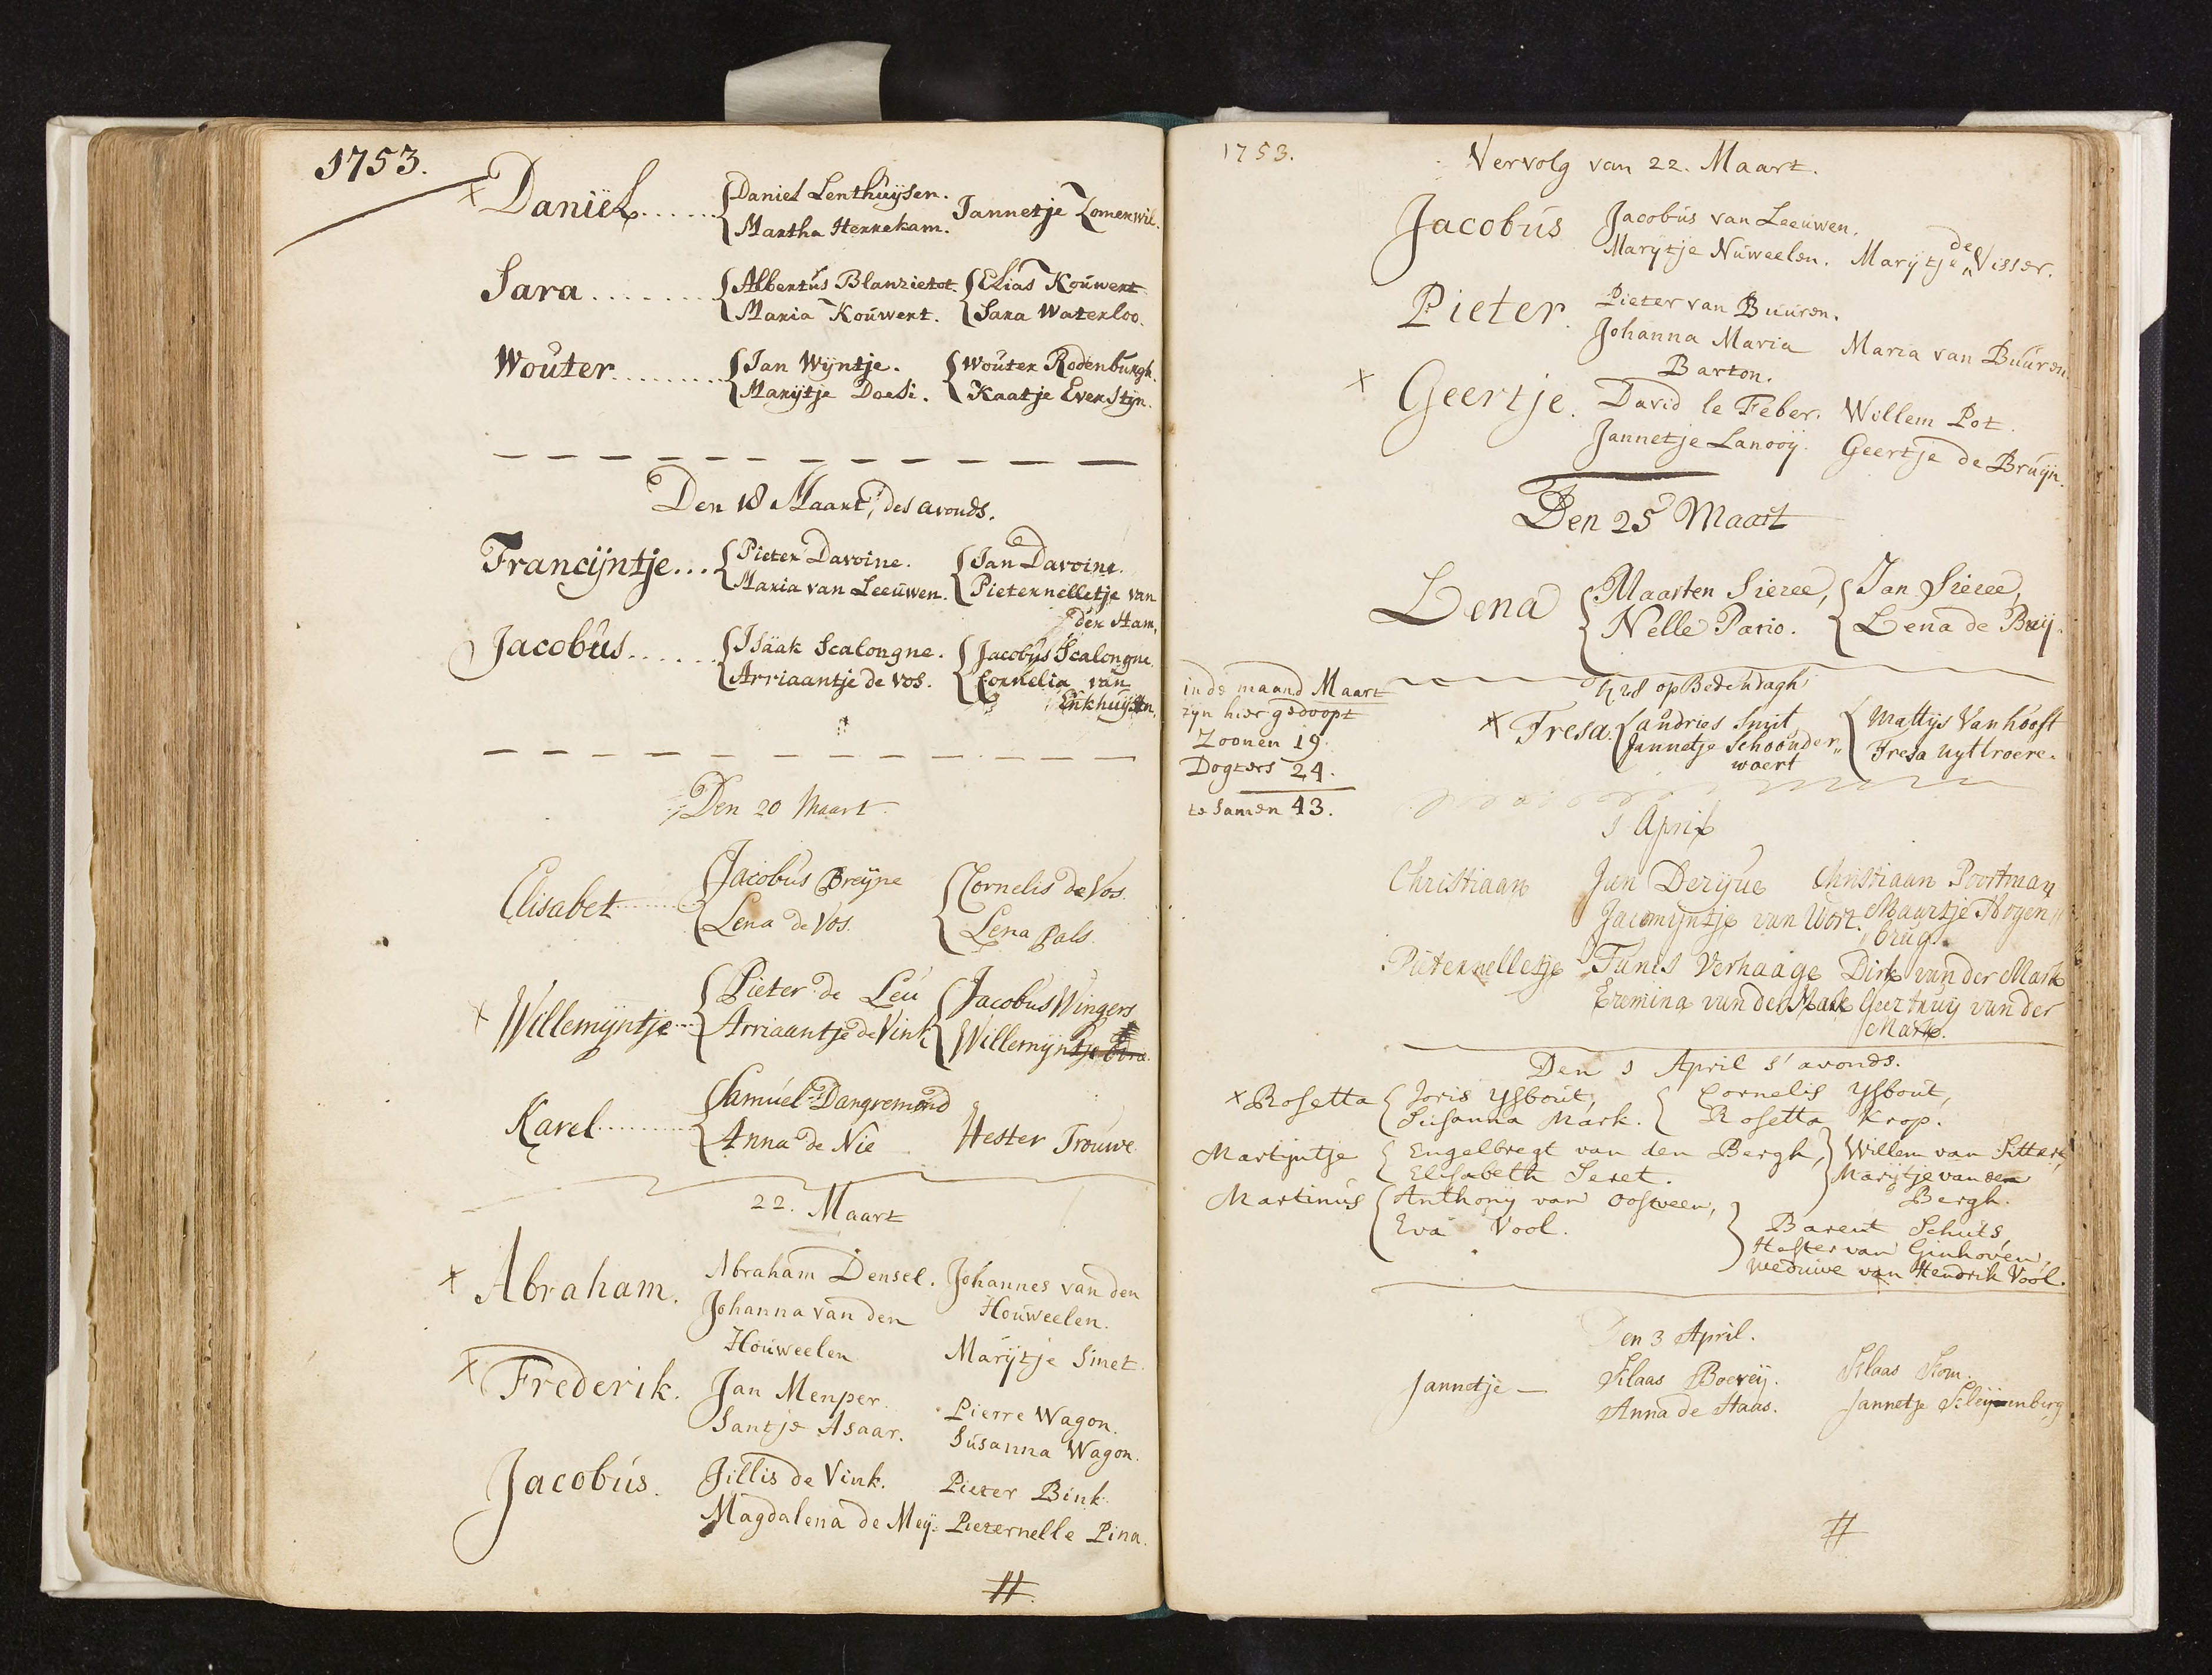 1753.
Daniël...... Daniel Lenthuijsen. Jannetje Zomerwil.
Martha Herrekam.
Sara....... Albertus Blanzietot. Elias Kouwert
Maria Kouwert. Sara Waterloo.
Wouter......... Jan Wijntje. Wouter Rodenburgh.
Marijtje Doesi. Kaatje Everstijn.
Den 18 Maart, des avonds.
Francijntje... Pieter Davoine. Jan Davoine.
Maria van Leeuwen. Pieternelletje van
der Ham.
Jacobus...... Isäak Scalongne. Jacobus Scalongne.
Arriaantje de Vos. Cornelia van
Enkhuijsen.
Den 20 Maart
Elisabet......... Jacobus Breijne Cornelis de Vos.
Lena de Vos. Lena Pals.
Willemijntje... Pieter de Leu Jacobus Wingers
Arriaantje de Vink Willemijntje
Karel.......... Samuel Dangremond
Anna de Nie Hester Trouwe.
22. Maart
Abraham. Abraham Densel. Johannes van den
Johanna van den Houweelen.
Houweelen Marijtje Smet.
Frederik. Jan Menper. Pierre Wagon.
Santje Asaar. Susanna Wagon.
Jacobus. Jillis de Vink. Pieter Bink.
Magdalena de Meij. Pieternelle Pina.
#
1753.
Vervolg van 22. Maart.
Jacobus Jacobus van Leeuwen.
Marijtje Nuweelen. Marijtje de Visser.
Pieter. Pieter van Buuren.
Johanna Maria Maria van Buuren.
Barton.
Geertje. David le Feber. Willem Pot.
Jannetje Lanooij. Geertje de Bruijn.
Den 25 Maart
Lena Maarten Sieree, Jan Sieree,
Nelle Pario. Lena de Breij.
in de maand Maart
zijn hier gedoopt
Zoonen 19.
Dogters 24.
te samen 43.
28 op Bededagh
Fresa. andries Smit Mattijs Van hooft
Jannetje Schoonder„ Fresa uyttroere.
woert
1 April
Christiaan Jan Derijue Christiaan Poortman
Jacomijntje van Wort. Maartje Hogen„
„brug.
Pieternelletje Tunis Verhaage Dirk van der Mark
Ermina van der Mark Geertruij van der
Mark.
Den 1 April s'avonds.
Rosetta Joris Ysbout, Cornelis Ysbout,
Susanna Mark. Rosetta Krop.
Martijntje Engelbregt van den Bergh, Willem van Sittert,
Elisabeth Seret. Marijtje van den
Bergh.
Martinus Anthonij van Oosween,
Eva Vool. Barent Schuts
Hester van Ginhoven,
weduwe van Hendrik Vool.
Den 3 April.
Jannetje — Klaas Boeveij. Klaas Kom.
Anna de Haas. Jannetje Kleijnenberg
#